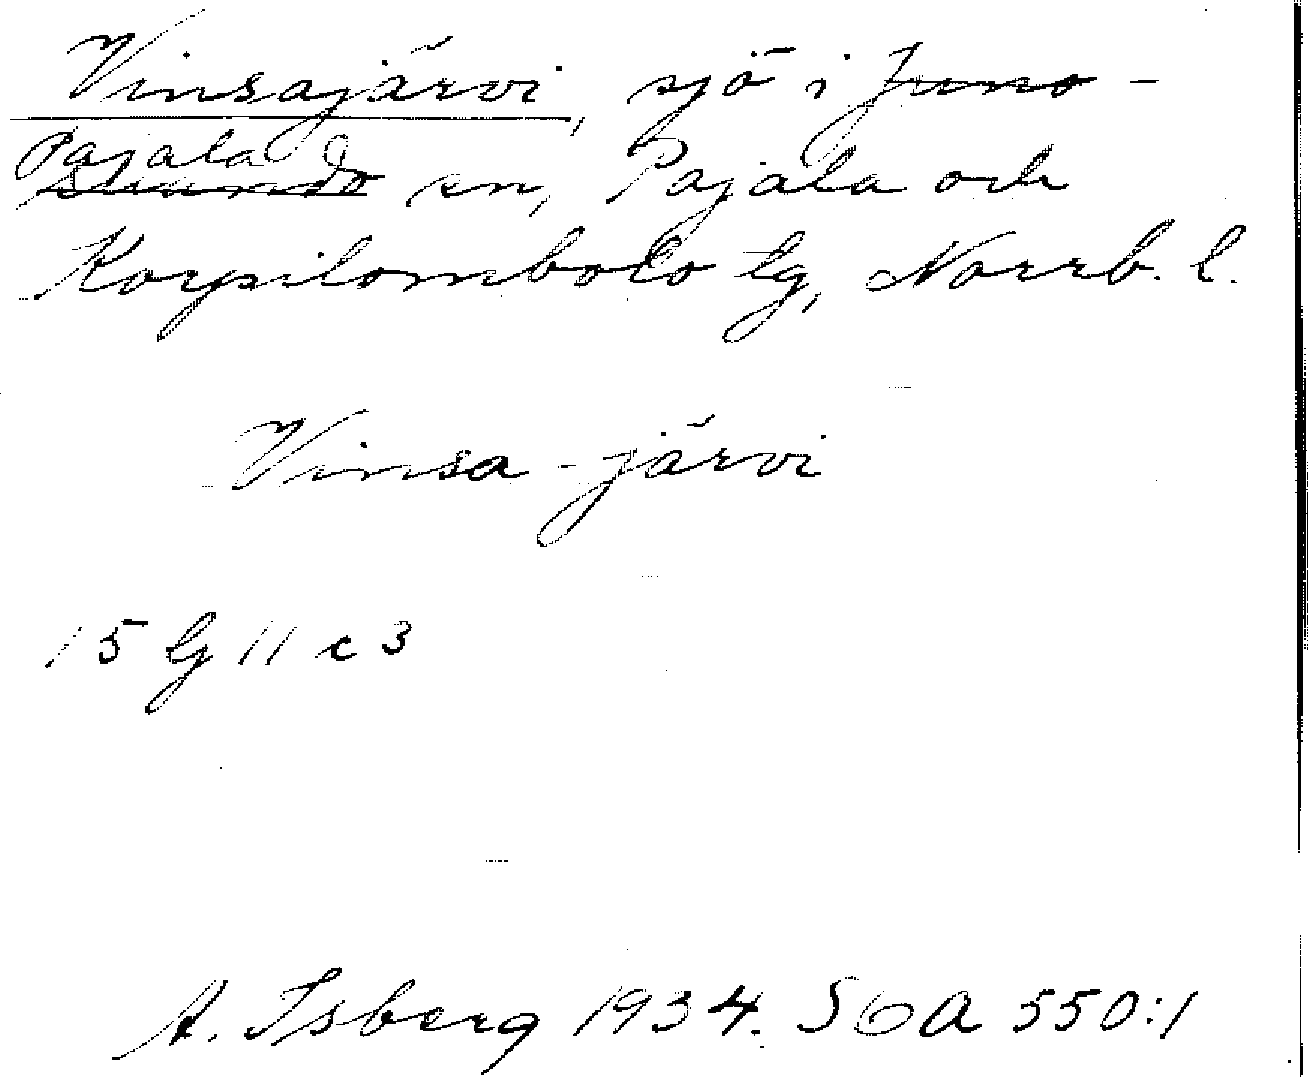 Vinsajärvi, sjö i Juno-
Pajala
suando sn, Pajala och
Korpilombolo tg, Norrb. l.
Vinsa-järvi
15 G 11 c 3
A. Isberg 1934. SOA 550:1